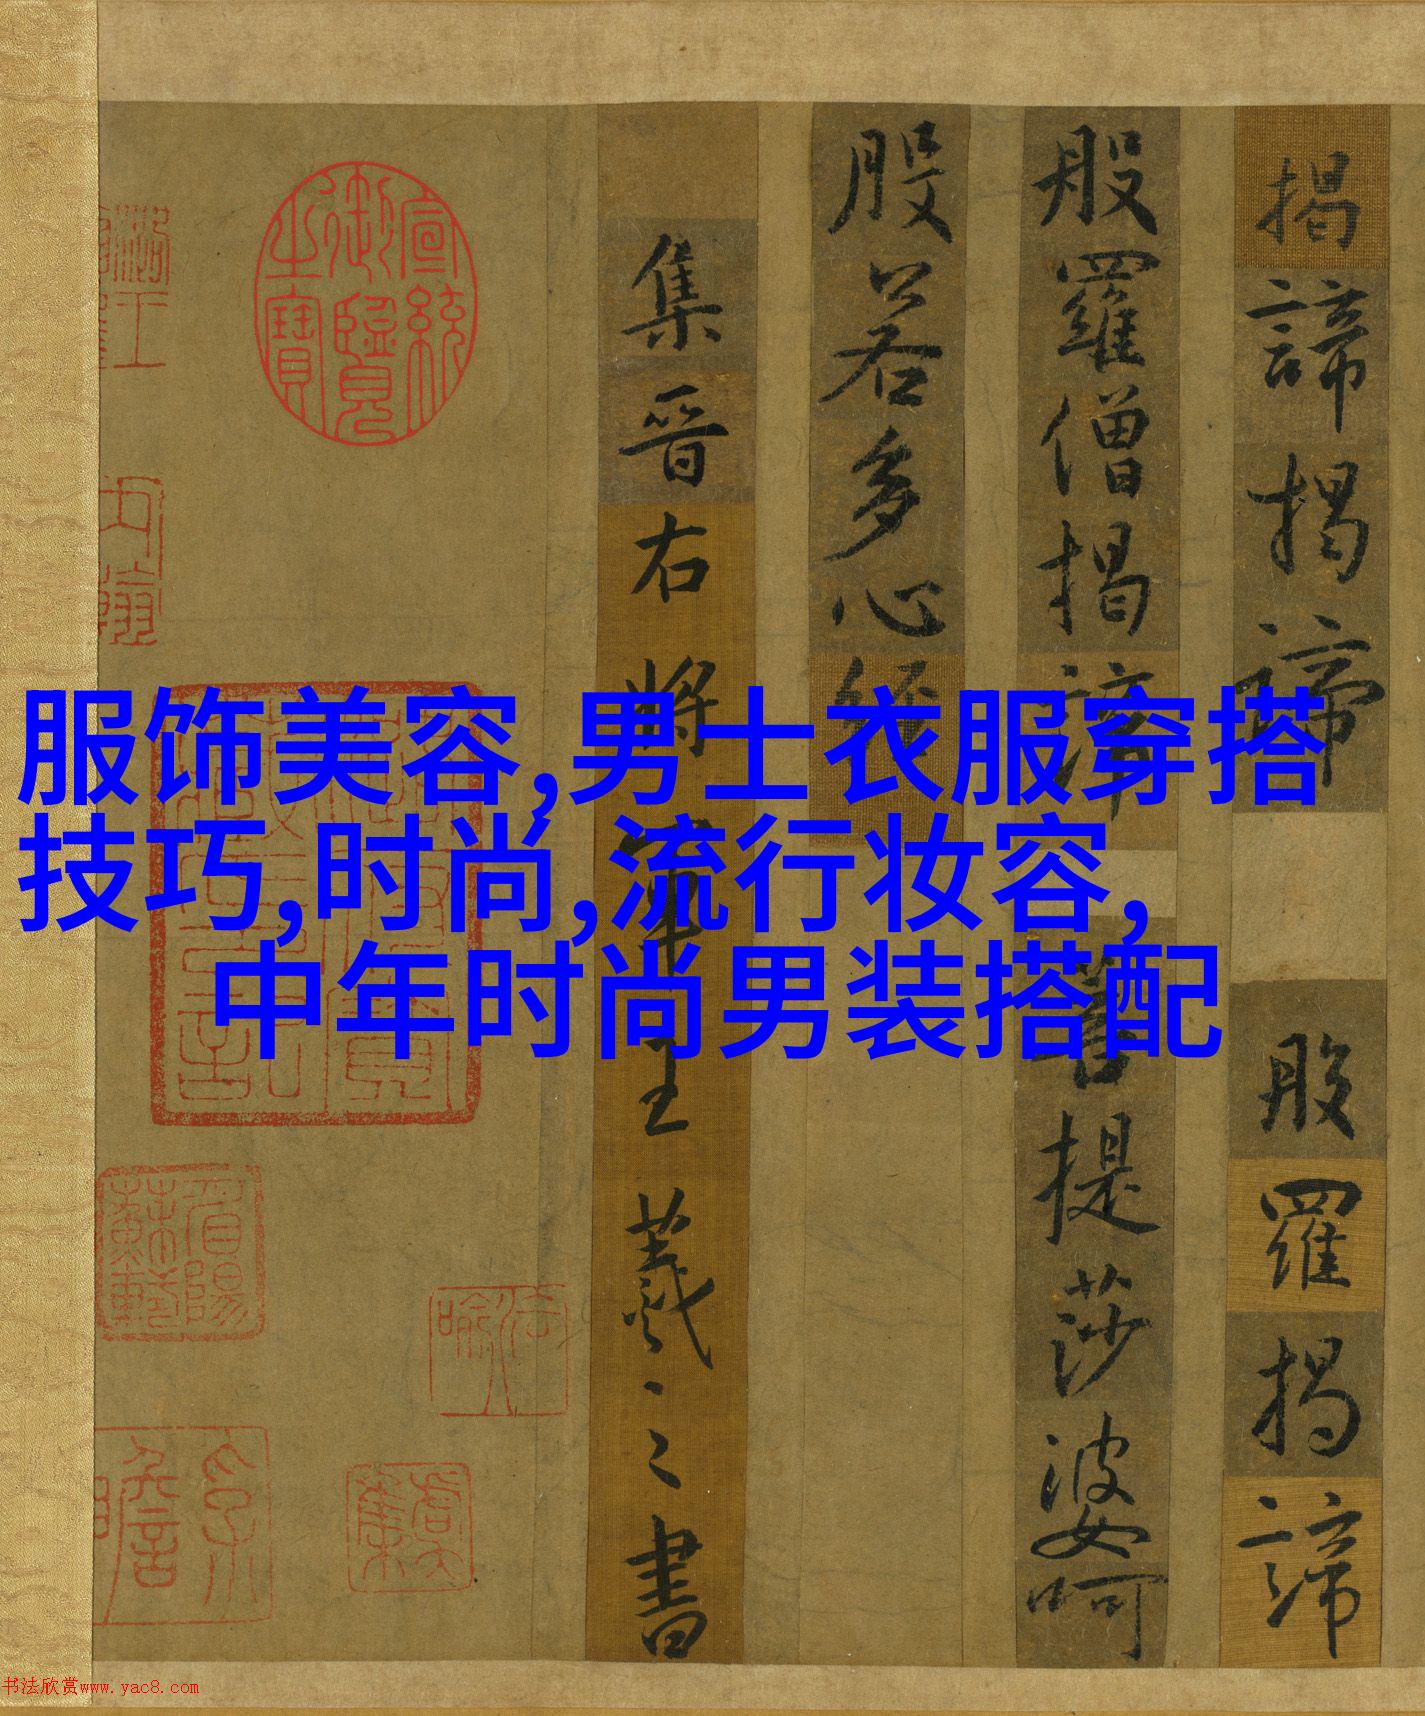 服饰美容,男士衣服穿搭
技巧,时尚,流行妆容,
中年时尚男装搭配
揭諦揭諦 般羅揭諦
般羅僧揭諦 菩提莎婆呵
般若多心經
集晉右將軍王羲之書
宣統御覽之寶
书法欣赏www.yac8.com